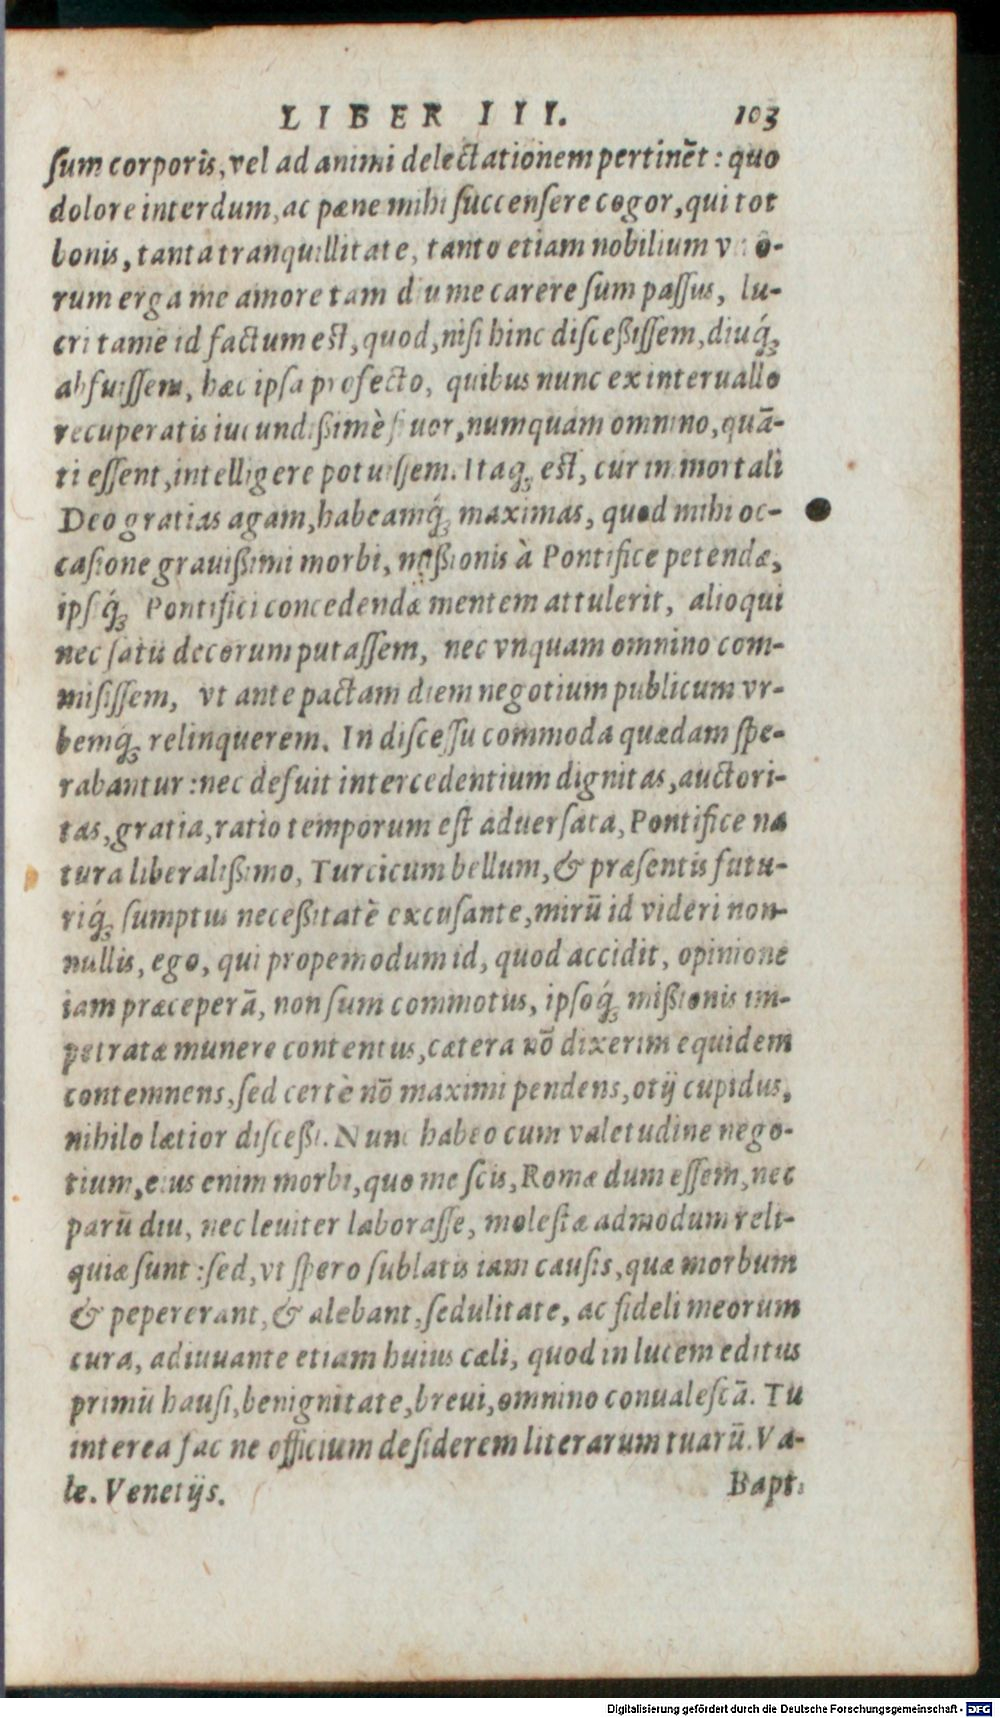 LIBER III. 103
ſum corporis, vel ad animi delectationem pertinēt: quo
dolore interdum, ac pæne mihi ſuccenſere cogor, qui tot
bonis, tanta tranquillitate, tanto etiam nobilium viro-
rum erga me amore tam diu me carere ſum paſſus, lu-
cri tamē id factum eſt, quod, niſi hinc diſceßiſſem, diuq́;
abfuiſſem, hæc ipſa profecto, quibus nunc ex interuallo
recuperatis iucundißimè fruor, numquam omnino, quā-
ti eſſent, intelligere potuiſſem. Itaq; eſt, cur immortali
Deo gratias agam, habeamq́; maximas, quod mihi oc-
caſione grauißimi morbi, mißionis à Pontifice petendæ,
ipſiq́; Pontifici concedendæ mentem attulerit, alioqui
nec ſatis decorum putaſſem, nec vnquam omnino com-
miſiſſem, vt ante pactam diem negotium publicum vr-
bemq́; relinquerem. In diſceſſu commoda quædam ſpe-
rabantur: nec defuit intercedentium dignitas, auctori-
tas, gratia, ratio temporum eſt aduerſata, Pontifice na
tura liberalißimo, Turcicum bellum, & præſentis futu-
riq́; ſumptus neceßitatē excuſante, mirū id videri non-
nullis, ego, qui propemodum id, quod accidit, opinione
iam præceperā, non ſum commotus, ipſoq́; mißionis im-
petratæ munere contentus, cætera nō dixerim equidem
contemnens, ſed certè nō maximi pendens, otij cupidus,
nihilo lætior diſceßi. Nunc habeo cum valetudine nego-
tium, eius enim morbi, quo me ſcis, Romæ dum eſſem, nec
parū diu, nec leuiter laboraſſe, moleſtæ admodum reli-
quiæ ſunt: ſed, vt ſpero ſublatis iam cauſis, quæ morbum
& pepererant, & alebant, ſedulitate, ac fideli meorum
cura, adiuuante etiam huius cæli, quod in lucem editus
primū hauſi, benignitate, breui, omnino conualeſcā. Tu
interea fac ne officium deſiderem literarum tuarū. Va-
le. Venetijs.
Bapt.
Digitalisierung gefördert durch die Deutsche Forschungsgemeinschaft - DFG